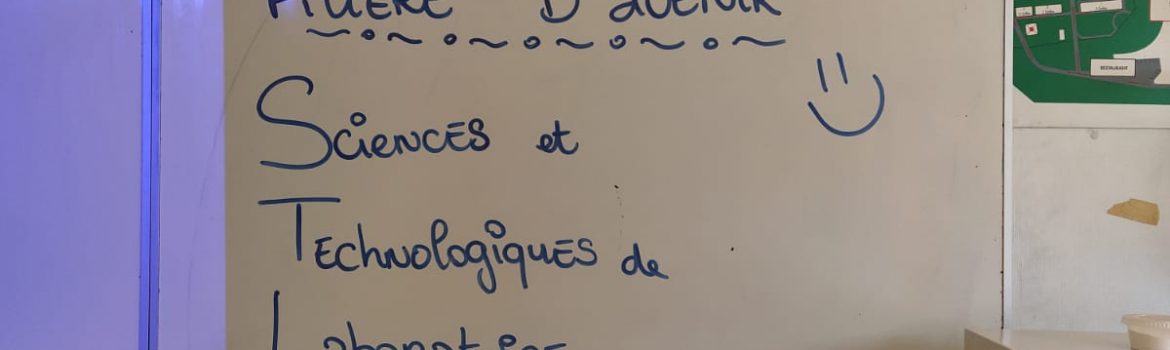 FILIÈRE D'AVENIR
Sciences et
Technologiques de
Laboratoire
RESTAURANT